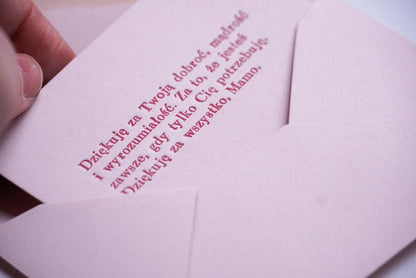 Dziękuję za Twoją dobroć, mądrość
i wyrozumiałość. Za to, że jesteś
zawsze, gdy tylko Cię potrzebuję.
Dziękuję za wszystko, Mamo.